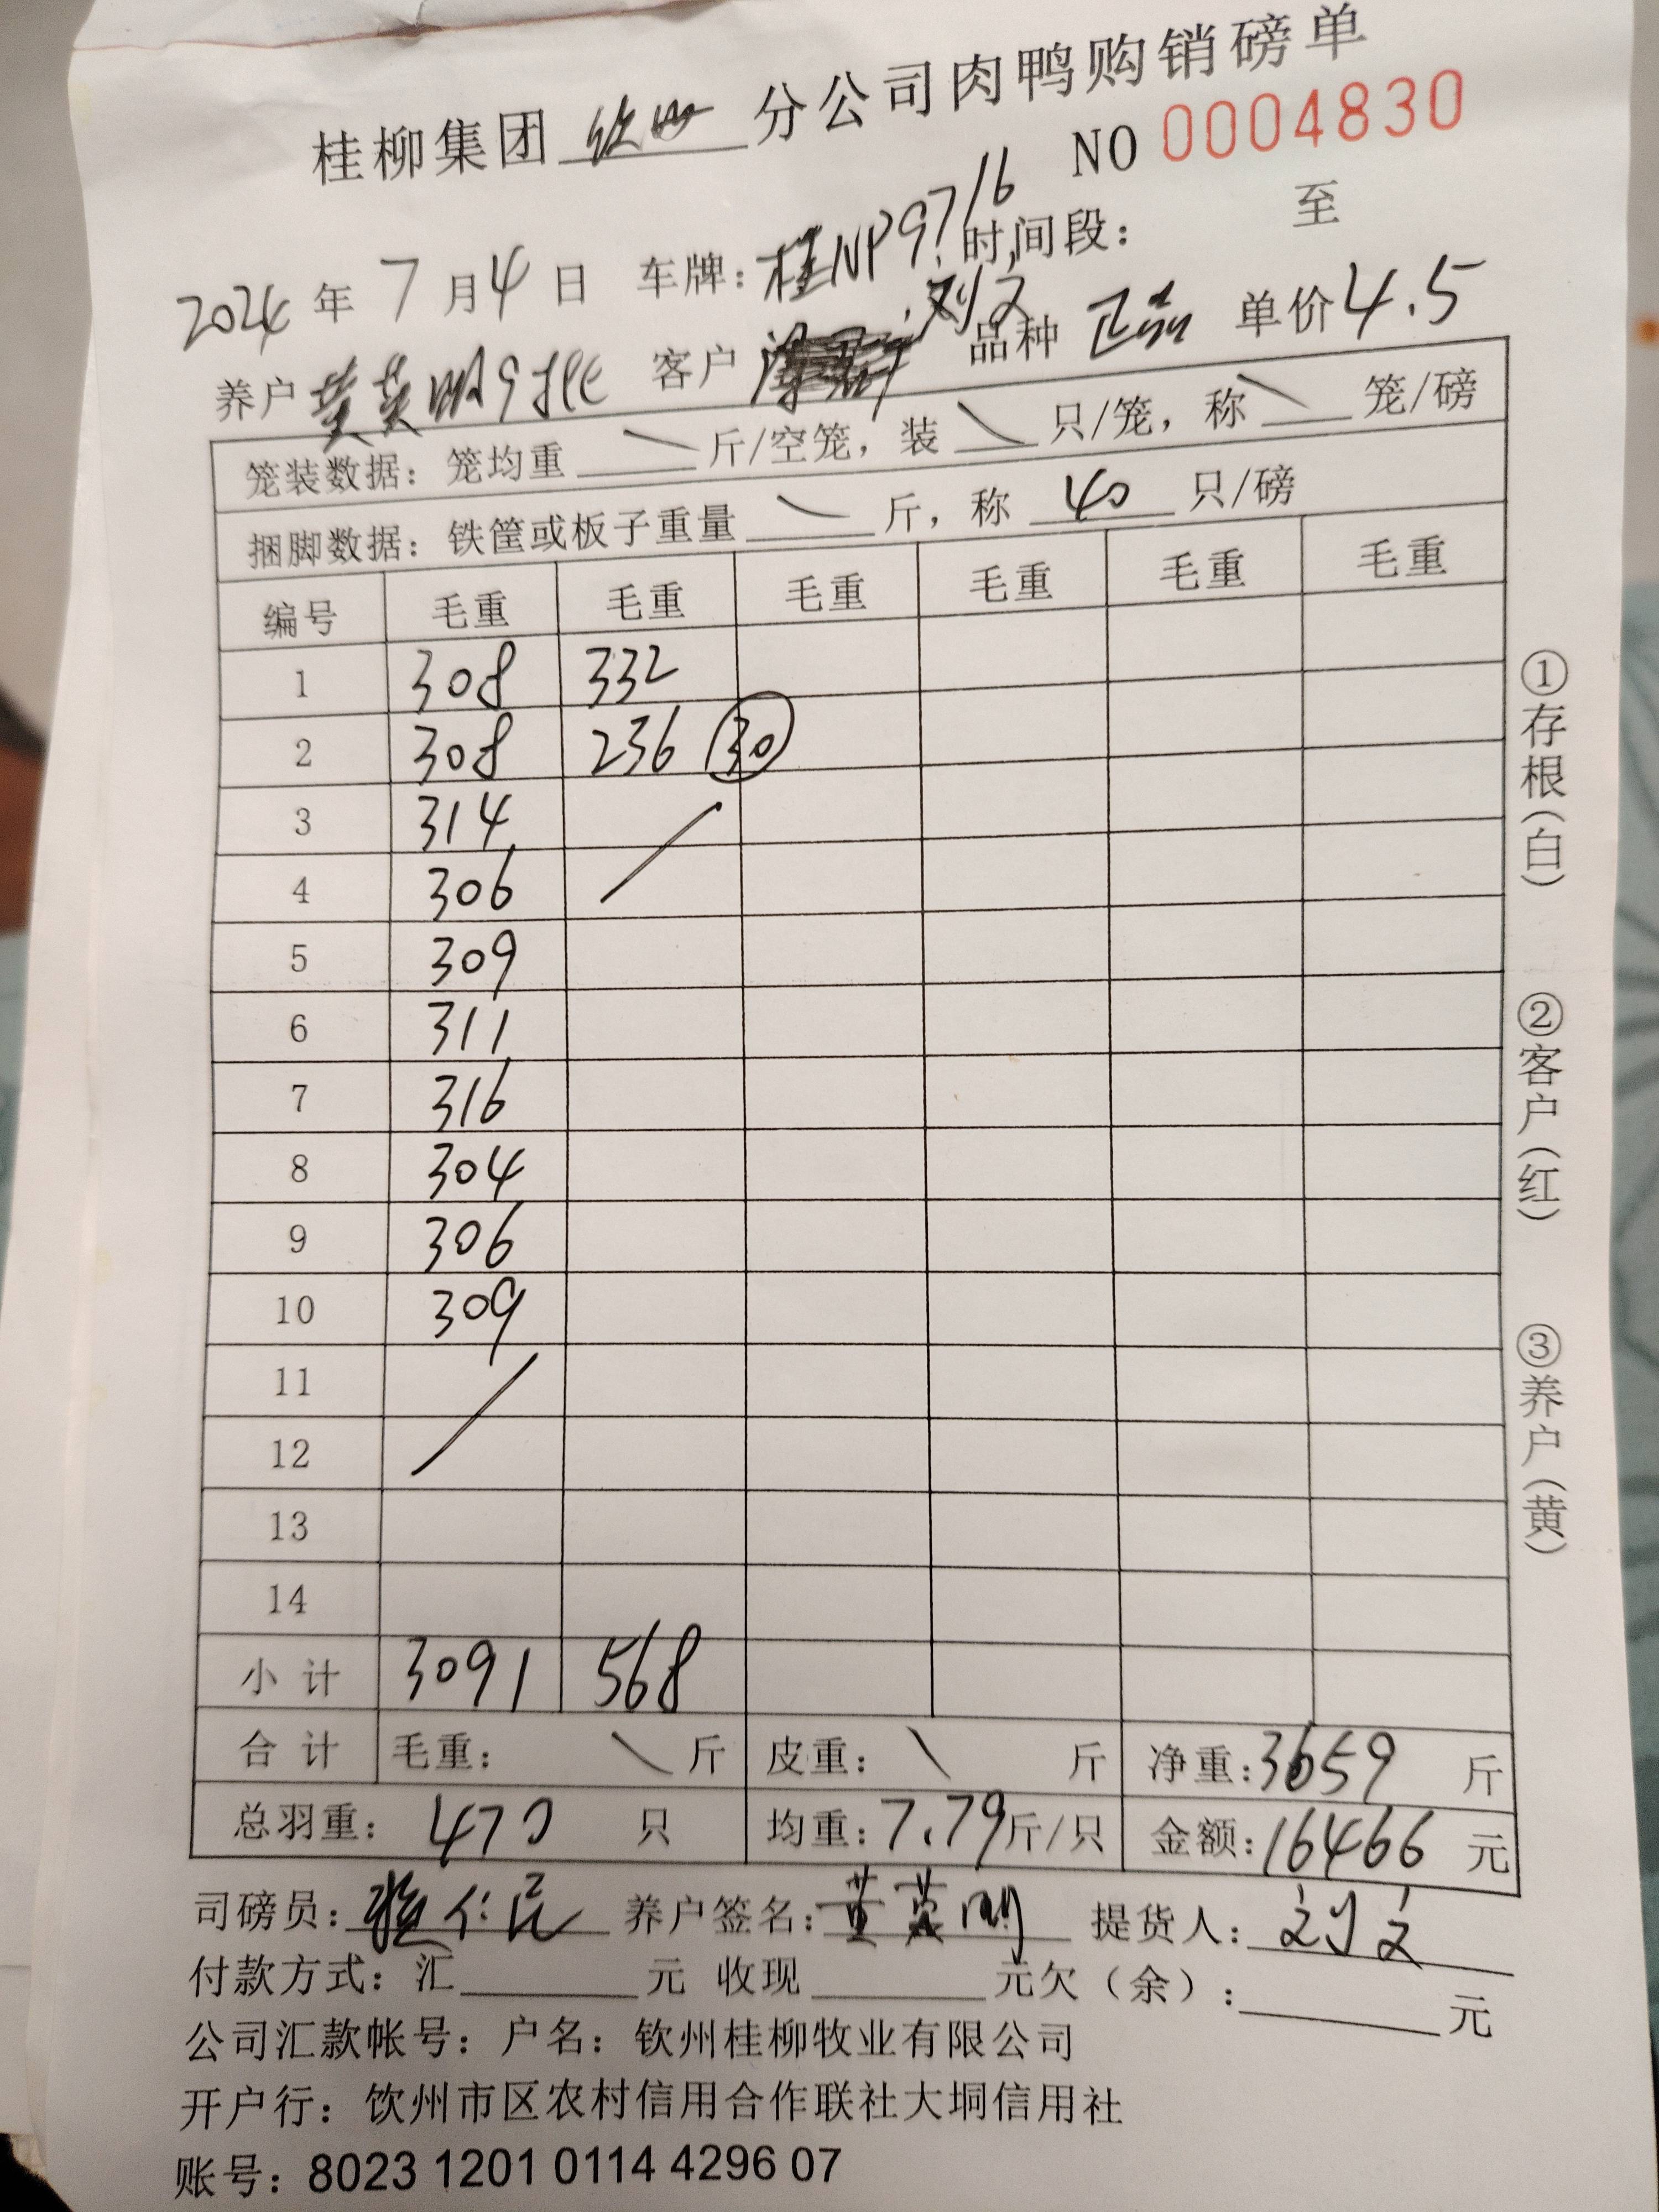 桂柳集团 钦州 分公司肉鸭购销磅单
NO 0004830
2024 年 7 月 4 日 车牌：桂NP9716 时间段： 至
养户 黄英明9批 客户 刘文 品种 正品 单价 4.5
笼装数据：笼均重 \ 斤/空笼，装 \ 只/笼，称 \ 笼/磅
捆脚数据：铁筐或板子重量 \ 斤，称 40 只/磅
编号 毛重 毛重 毛重 毛重 毛重 毛重
1 308 332
2 308 236 30
3 314
4 306
5 309
6 311
7 316
8 304
9 306
10 309
11
12
13
14
小计 3091 568
合计 毛重： \ 斤 皮重： \ 斤 净重：3659 斤
总羽重： 470 只 均重：7.79斤/只 金额：16466 元
司磅员： 养户签名：黄英明 提货人：刘文
付款方式：汇 元 收现 元欠（余）： 元
公司汇款帐号：户名：钦州桂柳牧业有限公司
开户行：钦州市区农村信用合作联社大垌信用社
账号：8023 1201 0114 4296 07
①存根（白）
②客户（红）
③养户（黄）